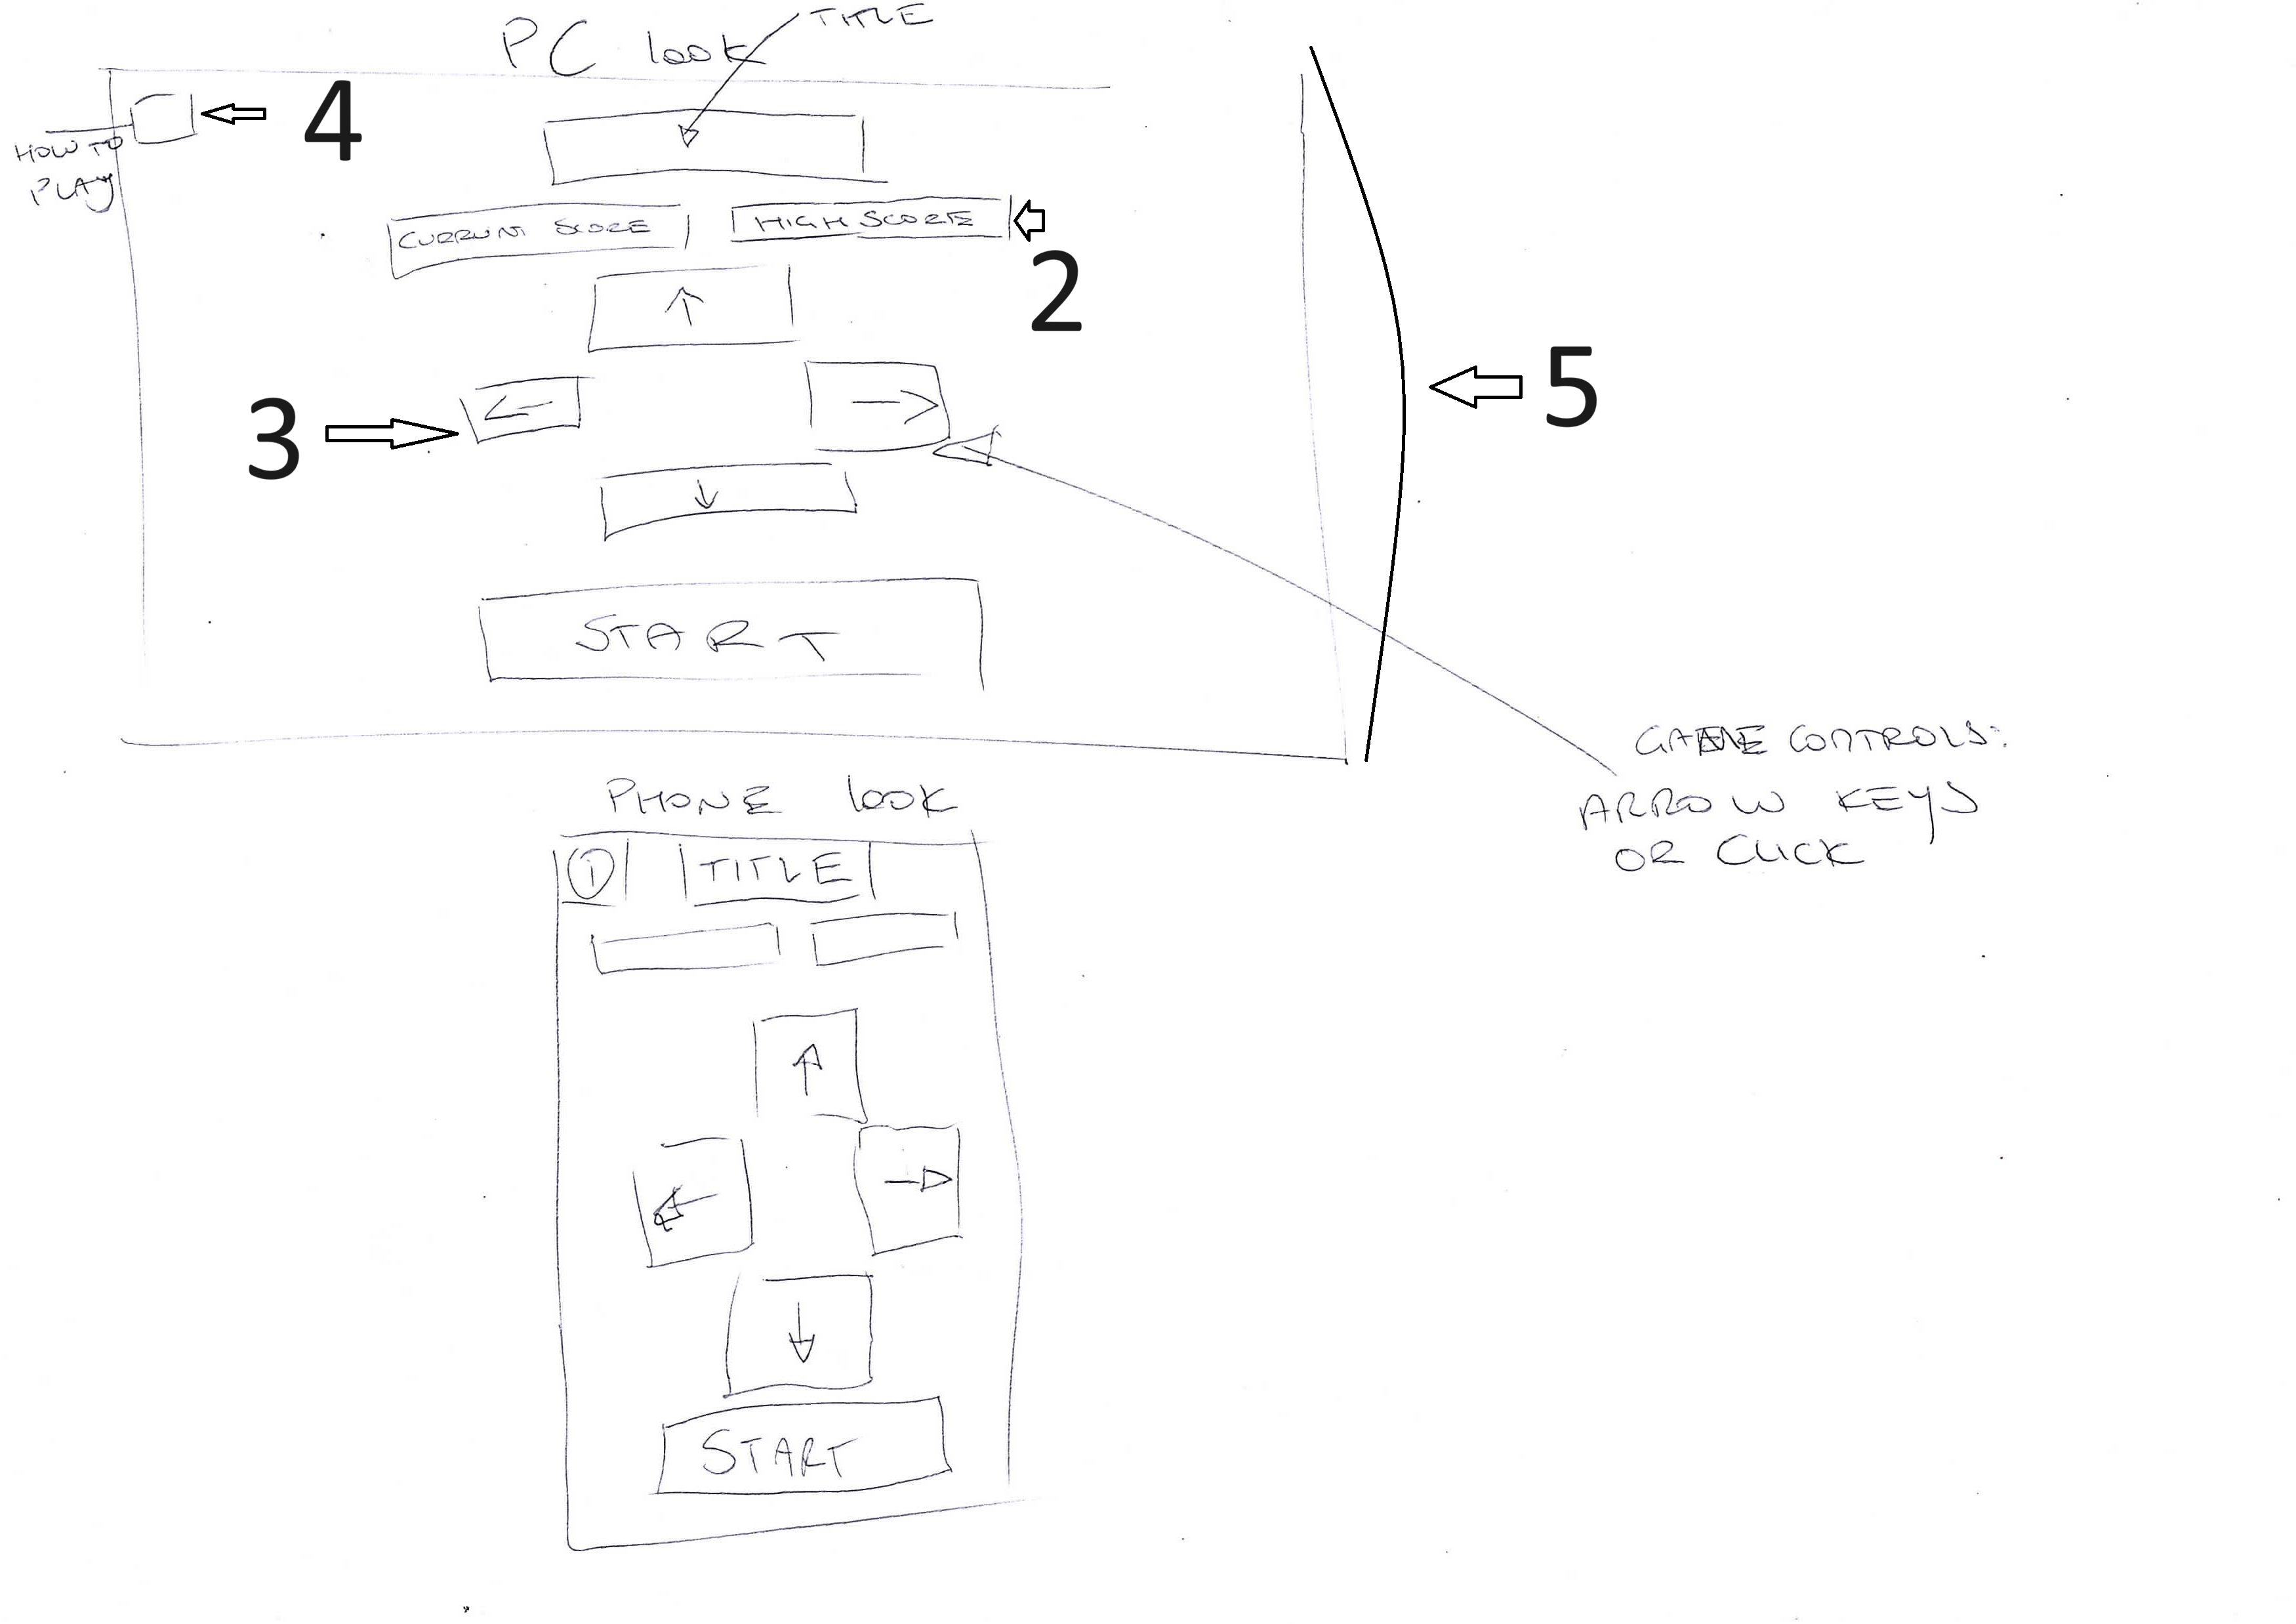 TITLE
PC look
4
HOW TO
PLAY
CURRUNT SCORE
HIGH SCORE
2
3
5
START
GAME CONTROLS:
ARROW KEYS
OR CLICK
PHONE look
i
TITLE
START